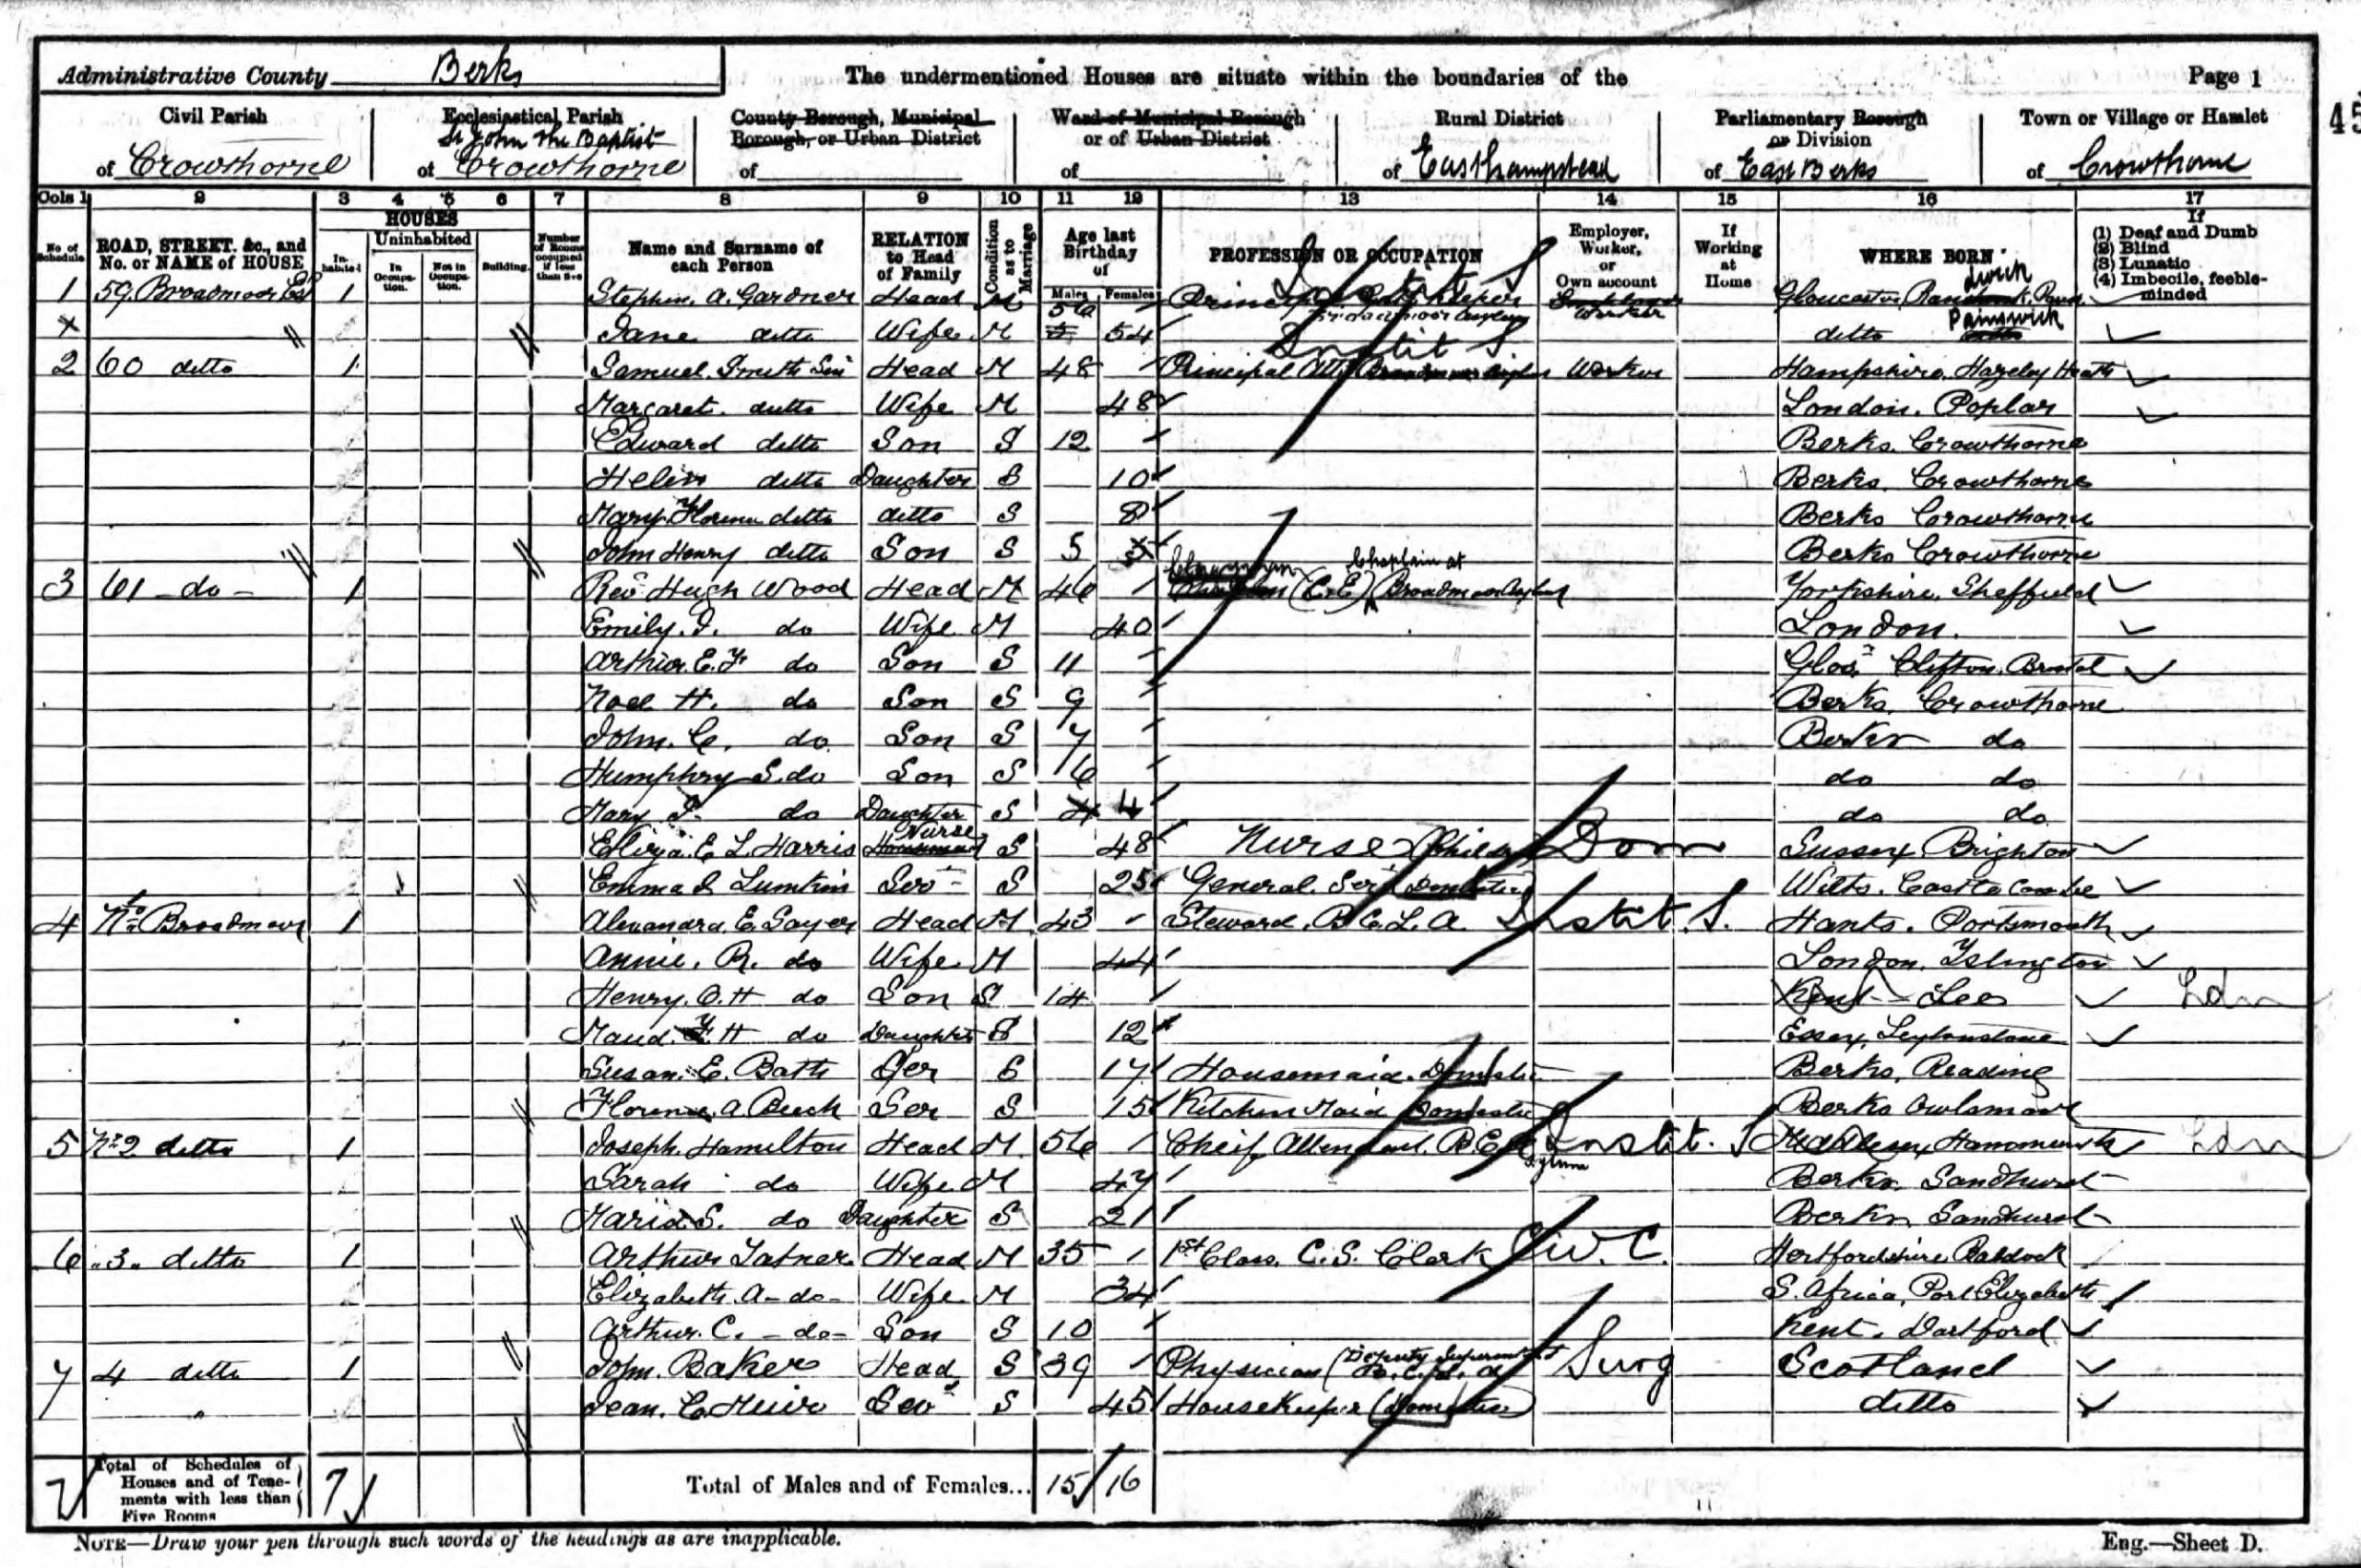 Administrative County Berks The undermentioned Houses are situate within the boundaries of the Page 1
Civil Parish of Crowthorne
Ecclesiastical Parish of St John the Baptist Crowthorne
County Borough, Municipal Borough, or Urban District of
Ward of Municipal Borough or of Urban District of
Rural District of Easthampstead
Parliamentary Borough or Division of East Berks
Town or Village or Hamlet of Crowthorne
45
Cols 1 2 3 4 5 6 7 8 9 10 11 12 13 14 15 16 17
No. of Schedule
ROAD, STREET, &c., and No. or NAME of HOUSE
HOUSES
Inhabited
Uninhabited
In Occupation.
Not in Occupation.
Building.
Number of Rooms occupied if less than five
Name and Surname of each Person
RELATION to Head of Family
Condition as to Marriage
Age last Birthday of
Males Females
PROFESSION OR OCCUPATION
Employer, Worker, or Own account
If Working at Home
WHERE BORN
If
(1) Deaf and Dumb
(2) Blind
(3) Lunatic
(4) Imbecile, feeble-minded
1 59 Broadmoor 1 Stephen A. Gardner Head M 56 Principal Gatekeeper Broadmoor Asylum Instit S Worker Gloucester
Jane ditto Wife M 54 ditto Painswick
2 60 ditto 1 Samuel Smith Head M 48 Principal Att Broadmoor Asylum Instit S Worker Hampshire. Hazeley Heath
Margaret ditto Wife M 48 London. Poplar
Edward ditto Son S 12 Berks. Crowthorne
Helen ditto Daughter S 10 Berks. Crowthorne
Mary Florence ditto ditto S 8 Berks Crowthorne
John Henry ditto Son S 5 Berks Crowthorne
3 61 do 1 Rev Hugh Wood Head M 46 Clergyman (C.E) Chaplain at Broadmoor Asylum Yorkshire. Sheffield
Emily. I. do Wife M 40 London.
Arthur. E. F. do Son S 11 Glos. Clifton. Bristol
Noel H. do Son S 9 Berks. Crowthorne
John. C. do Son S 7 Berks do
Humphry S. do Son S 6 do do
Mary do Daughter S 4 do do
Eliza. E. L. Harris Nurse S 48 Nurse Dom Sussex Brighton
Emma Lumkin Ser S 25 General. Ser (Domestic) Wilts. Castle Combe
4 No 1 Broadmoor 1 E. Sayer Head M 43 Steward. B.C.L.A. Instit. S. Hants. Portsmouth
Annie. R. do Wife M 44 London. Islington
Henry. O. H do Son S 14 Kent Lee Ldn
Maud. F. H do Daughter S 12 Essex, Leytonstone
Susan. E. Batts Ser S 17 Housemaid. Domestic Berks. Reading
Florence. A Beech Ser S 15 Kitchen Maid Domestic Berks Owlsmoor
5 No 2 ditto 1 Joseph. Hamilton Head M 56 Cheif Attendant. B.C. Asylum Instit. S Middlesex, Hammersmith Ldn
Sarah do Wife M 47 Berks. Sandhurst
Maria S. do Daughter S 21 Berks Sandhurst
6 3 ditto 1 Arthur Head M 35 1st Class. C.S. Clerk Civ. C. Hertfordshire Baldock
Elizabeth. A do Wife M 34 S. Africa, Port Elizabeth
Arthur. C. do Son S 10 Kent. Dartford
7 4 ditto 1 John. Baker Head S 39 Physician (Deputy Superintendent B.C.L.A) Surg Scotland
Jean. C. Muir Ser S 45 Housekeeper (Domestic) ditto
7 Total of Schedules of Houses and of Tenements with less than Five Rooms 7 Total of Males and of Females... 15 16
NOTE—Draw your pen through such words of the headings as are inapplicable. Eng.—Sheet D.